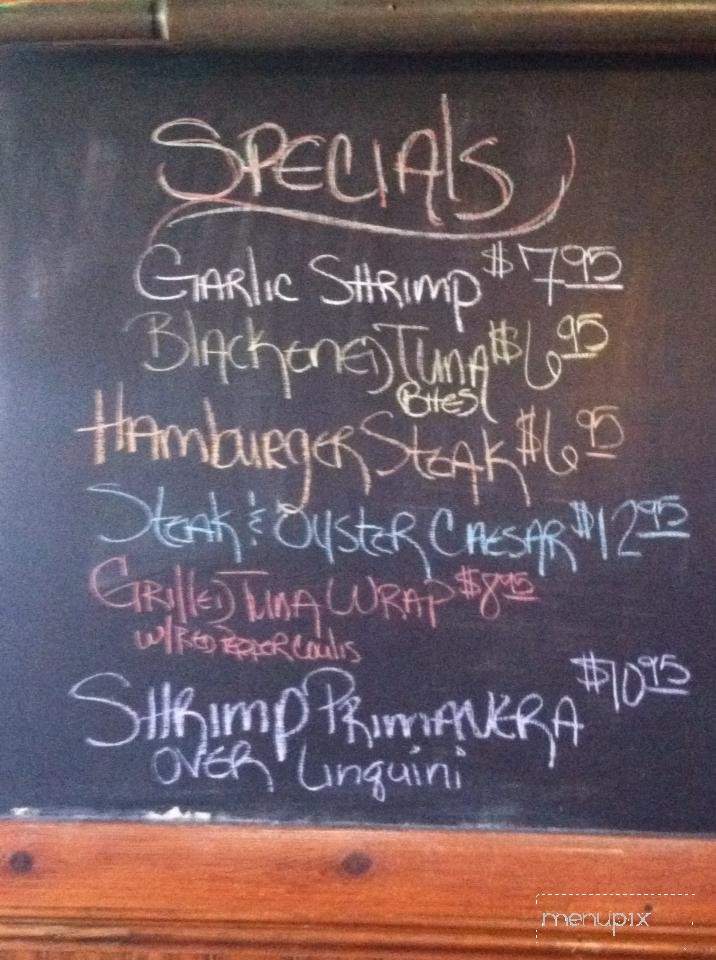 SPECIAlS
GARlic SHRIMP $7.95
BlackeneD Tuna $6.95
Bites
HambURgER STEAK $6.95
STEAK & OYSTER CAESAR $12.95
GRilleD TUNA WRAP $8.95
W/RED PEPPER Coulis
SHRimp PRimAVERA $10.95
OVER Linguini
menupix